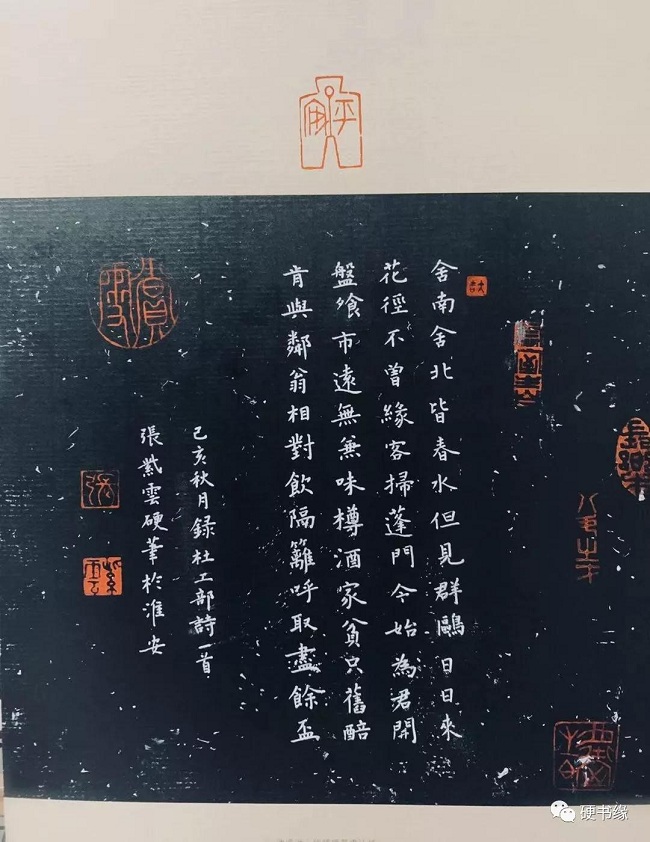 舍南舍北皆春水但見群鷗日日來
花徑不曾緣客掃蓬門今始為君開
盤飧市遠無無味樽酒家貧只舊醅
肯與鄰翁相對飲隔籬呼取盡餘盃
己亥秋月録杜工部詩一首
張紫雲硬筆於淮安
張
紫雲
硬书缘